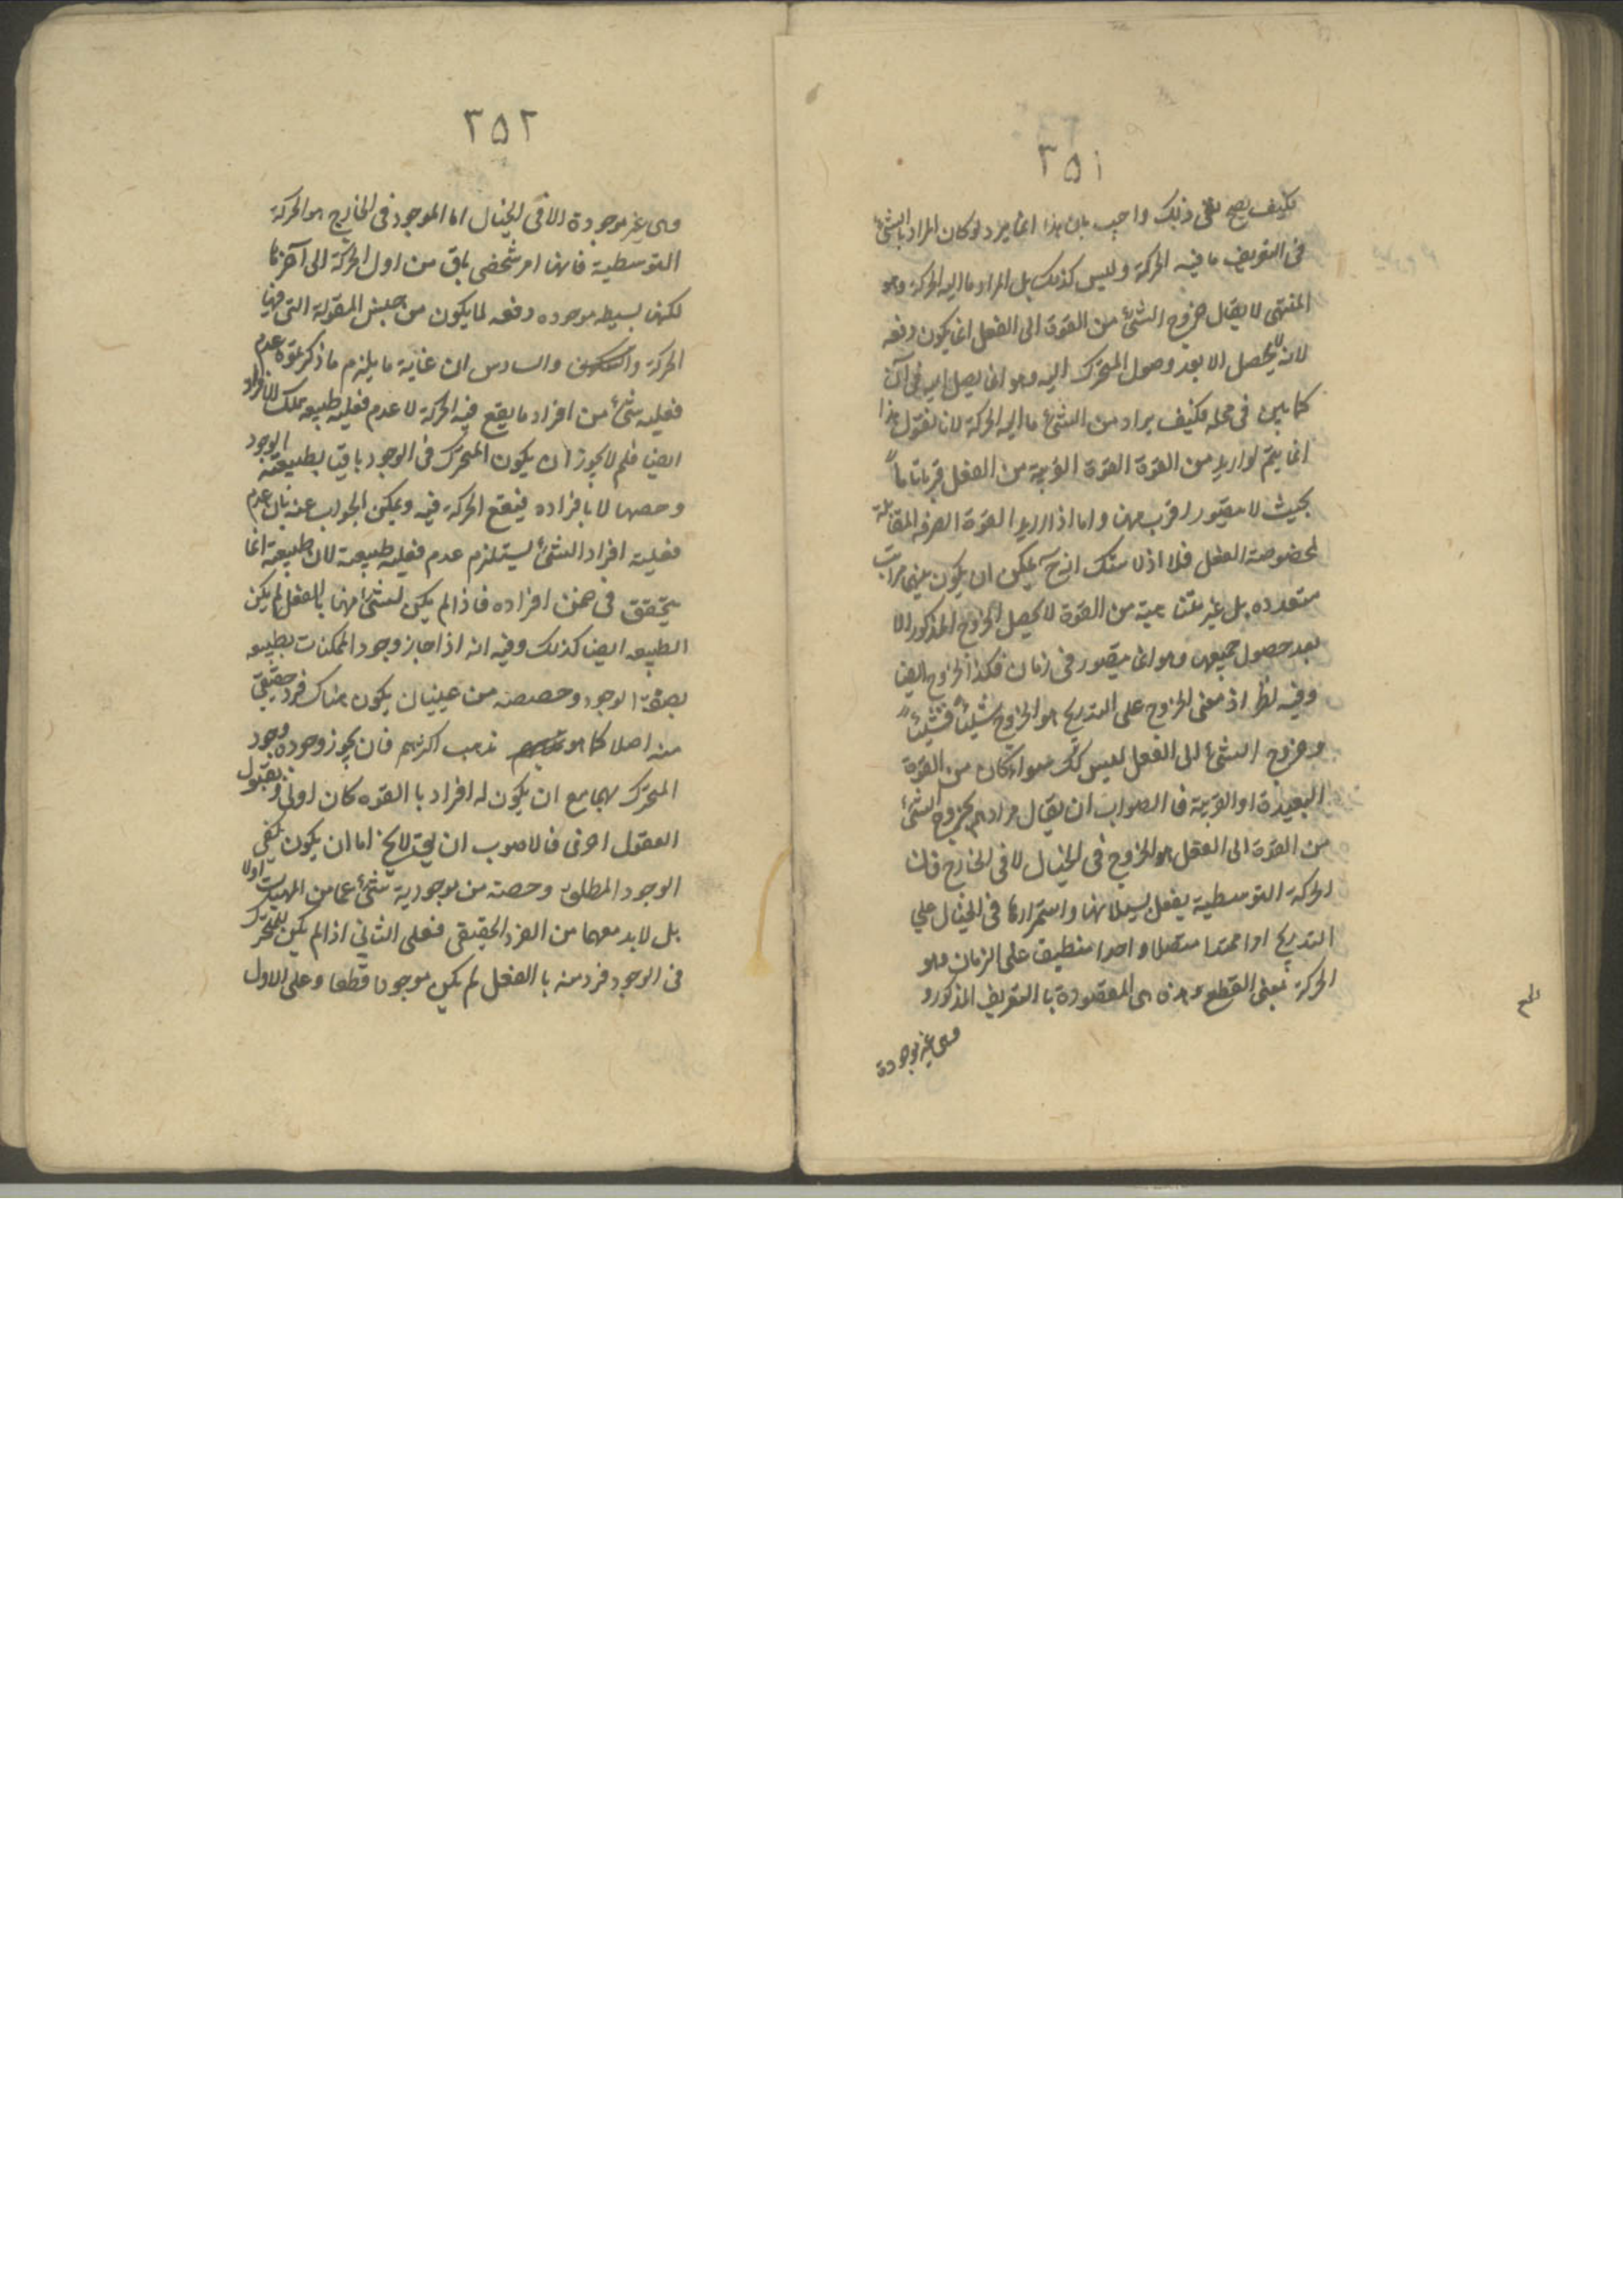 ٣٥١
فكيف يصح نفى ذلك واجيب بان هذا انما يرد لو كان المراد بالشئ
فى التعريف ما فيه الحركة وليس كذلك بل المراد ما اليه الحركة وهو
المنتهى لا يقال خروج الشئ من القوة الى الفعل انما يكون دفعه
لانه لا يحصل الا بعد وصول المتحرك اليه وهو انما يصل اليه فى آن
كما بين فى محله فكيف يراد من الشئ ما اليه الحركة لانا نقول هذا
انما يتم لو اريد من القوة القوة القريبة من الفعل قربا تاماً
بحيث لا يتصور اقرب منها واما اذا اريد القوة الصرفه المقابلة
لخصوصة الفعل فلا اذ لا شك انه ح يمكن ان يكون بينهما مراتب
متعدده بل غير متناهية من القوة لا يحصل الخروج المذكور الا
بعد حصول جميعها وهو انما يتصور فى زمان فكذا الخروج ايضا
وفيه نظر اذ معنى الخروج على التدريج هو الخروج شيئاً فشيئاً
وخروج الشئ الى الفعل ليس كك سواء كان من القوة
البعيدة او القريبة فا الصواب ان يقال مرادهم بخروج الشئ
من القوة الى الفعل هو الخروج فى الخيال لا فى الخارج فان
الحركة التوسطية يفعل بسيلانها واستمرارها فى الخيال على
التدريج امرا ممتدا متصلا واحدا منطبق على الزمان وهو
الحركة بمعنى القطع وهذه هى المقصودة با التعريف المذكور و
وهى غير موجودة
٣٥٢
وهى غير موجودة الا فى الخيال اما الموجود فى الخارج هو الحركة
التوسطية فانها امر شخصى باق من اول الحركة الى آخرها
لكنها بسيطه موجوده دفعه لما يكون من جنس المقولة التى فيها
الحركة والسادس ان غاية ما يلزم ما ذكرتموه عدم
فعليه شئ من افراد ما يقع فيه الحركة لا عدم فعليه طبيعه تلك الافراد
ايضا فلم لا يجوز ان يكون المتحرك فى الوجود باقيا بطبيعته الوجود
وحصها لا بافراده فيقع الحركة فيه ويمكن الجواب عنه بان عدم
فعلية افراد الشئ يستلزم عدم فعليه طبيعته لان طبيعته انما
يتحقق فى ضمن افراده فاذا لم يكن لشئ منها با الفعل لم يكن
الطبيعه ايضا كذلك وفيه انه اذا جاز وجود الممكنات بطبيعه
الوجود وحصصه من غير ان يكون هناك فرد حقيقى
منه اصلا كما هو مذهب اكثرهم فان يجوز وجوده وجود
المتحرك بها مع ان يكون له افراد با القوه كان اولى وبقبول
العقول احرى فالاصوب ان يق لا يخ اما ان يكون يكفى
الوجود المطلق وحصته من موجودية شئ ما من المهيات اولا
بل لابد معهما من الفرد الحقيقى فعلى الثانى اذا لم يكن للمتحرك
فى الوجود فرد منه با الفعل لم يكن موجودا قطعا وعلى الاول